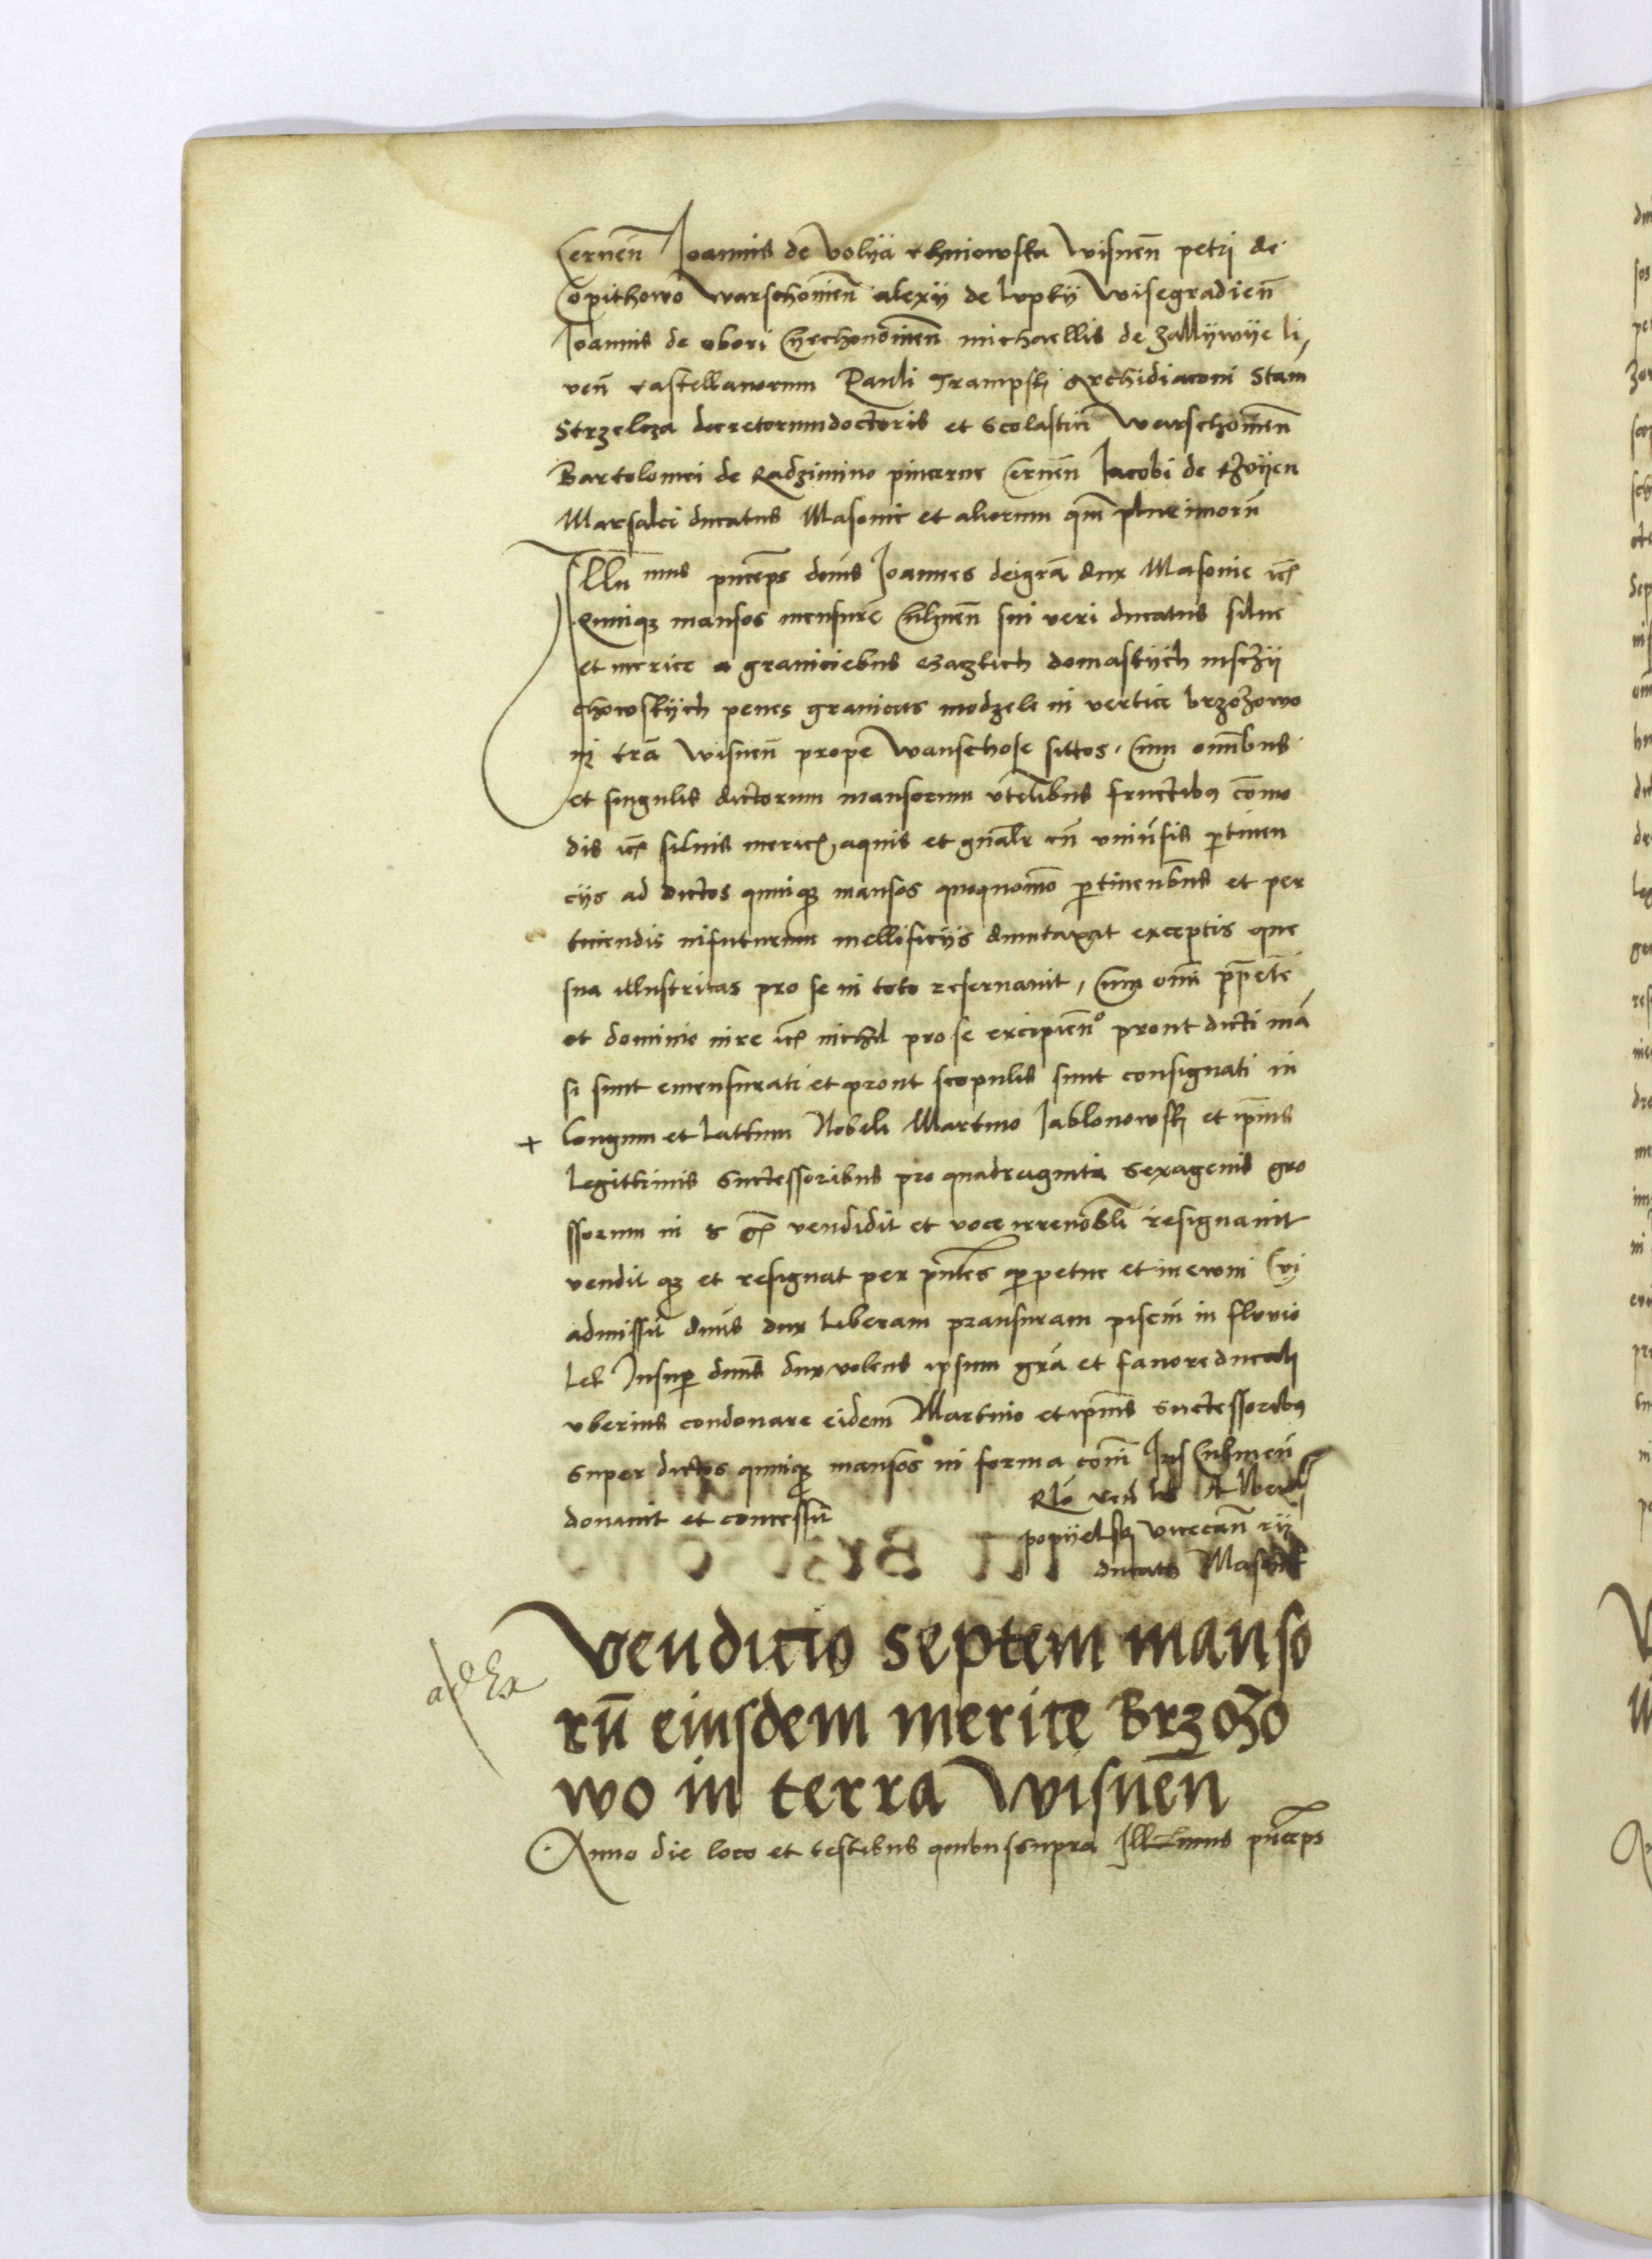 Cernen̄ Joannis de Volya chniowska Wisnen̄ petri de
Copithowo Warschouien̄ alexÿ de lupky Wisegradien̄
Joannis de obori Cyechonouien̄ michaellis de Zallÿwÿe li
uen̄ castellanorum Pauli Trampsk Archidiaconi Stani
Strzelcza decretorum doctoris et Scolastici Warschouien̄
Bartolomei de Radzimino pincerne Cernen̄ Jacobi de
Marsalci ducatus Masouie et aliorum qm̄ plurimorū
Illu mus princeps dn̄us Joannes dei grā dux Masouie
Quinq mansos mensure Culmen̄ sui veri ducatus silue
et merice a graniciebus domaskÿch mscÿ
chowskÿch penes granicies modzele in vertice brzozowo
in trā Wisnen̄ prope Wanschose sittos, Cum omībus
et singulis dictorum mansorum vtilitibus fructibus cōmo
dis siluis mericis aquis et gnāl cū vniūsis ptinen
cÿs ad dictos quinq mansos quoquomō ptinentibus et per
tinendis infuturum mellificÿs dumtaxat exceptis que
sua illustritas pro se in toto reseruauit, Cum omī
et dominio iure nichil pro se excipien̄ prout dicti mā
si sunt emensurati et prout scopulis sunt consignati in
+ Longum et Lattum Nobili Martino Jablonowsk et ipīus
Legittimis Successoribus pro quadraginta Sexagenis gro
ssorum in vendidit et voce irreuocbli resignauit
vendit q et resignat per pntes ppetue et in euum Cui
admissit dn̄us dux Liberam piscīu in fluuio
Lek Insup dn̄us dux volens ipsum grā et fauore ducali
vberius condonare eidem Martino et ipīus Successoribus
Super dictos quinq mansos in forma com̄i Jus Culmen̄
donauit et concessit
Rlō Alberti
popÿelsk vicecan̄ rÿ
ducatus Masouie
ad Ex
Vendicio septem manso
rū eiusdem merice Brzozo
wo in terra Wisnen̄
Anno die loco et testibus quibus supra Illustrimus pn̄ceps